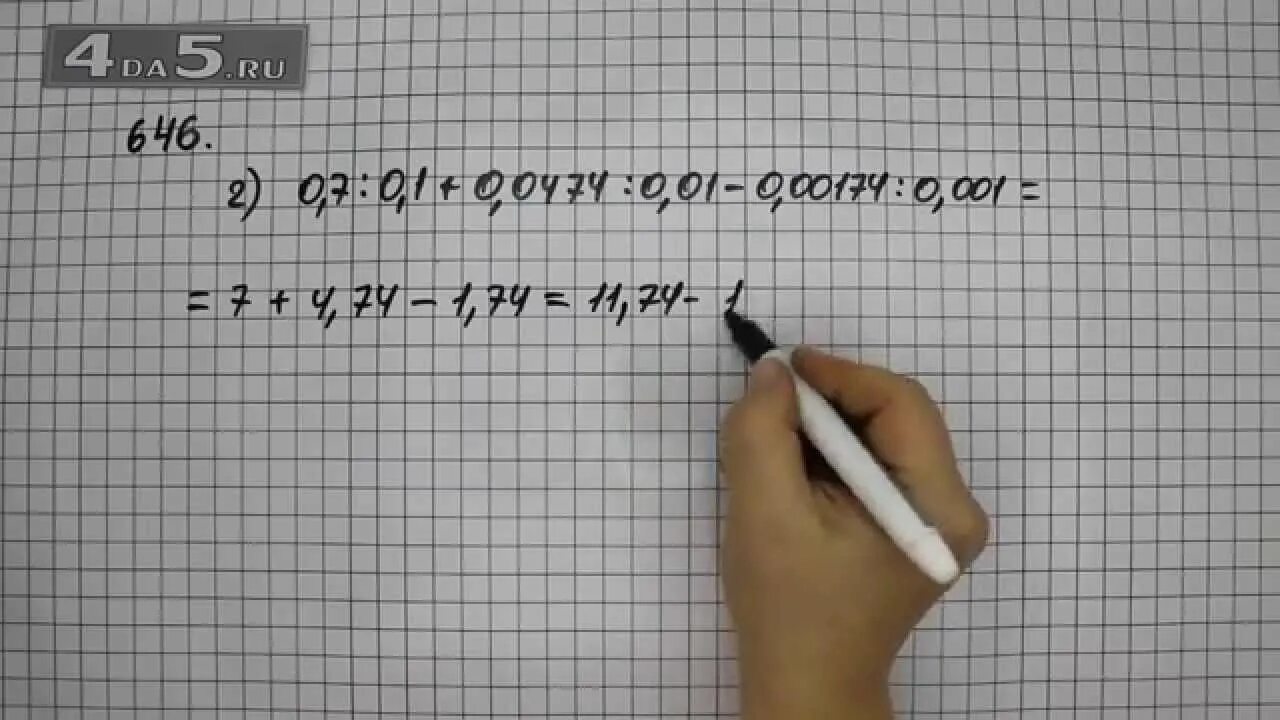 4DA5.RU
646.
2) 0,7:0,1+0,0474:0,01-0,00174:0,001=
= 7 + 4,74 - 1,74 = 11,74 - 1